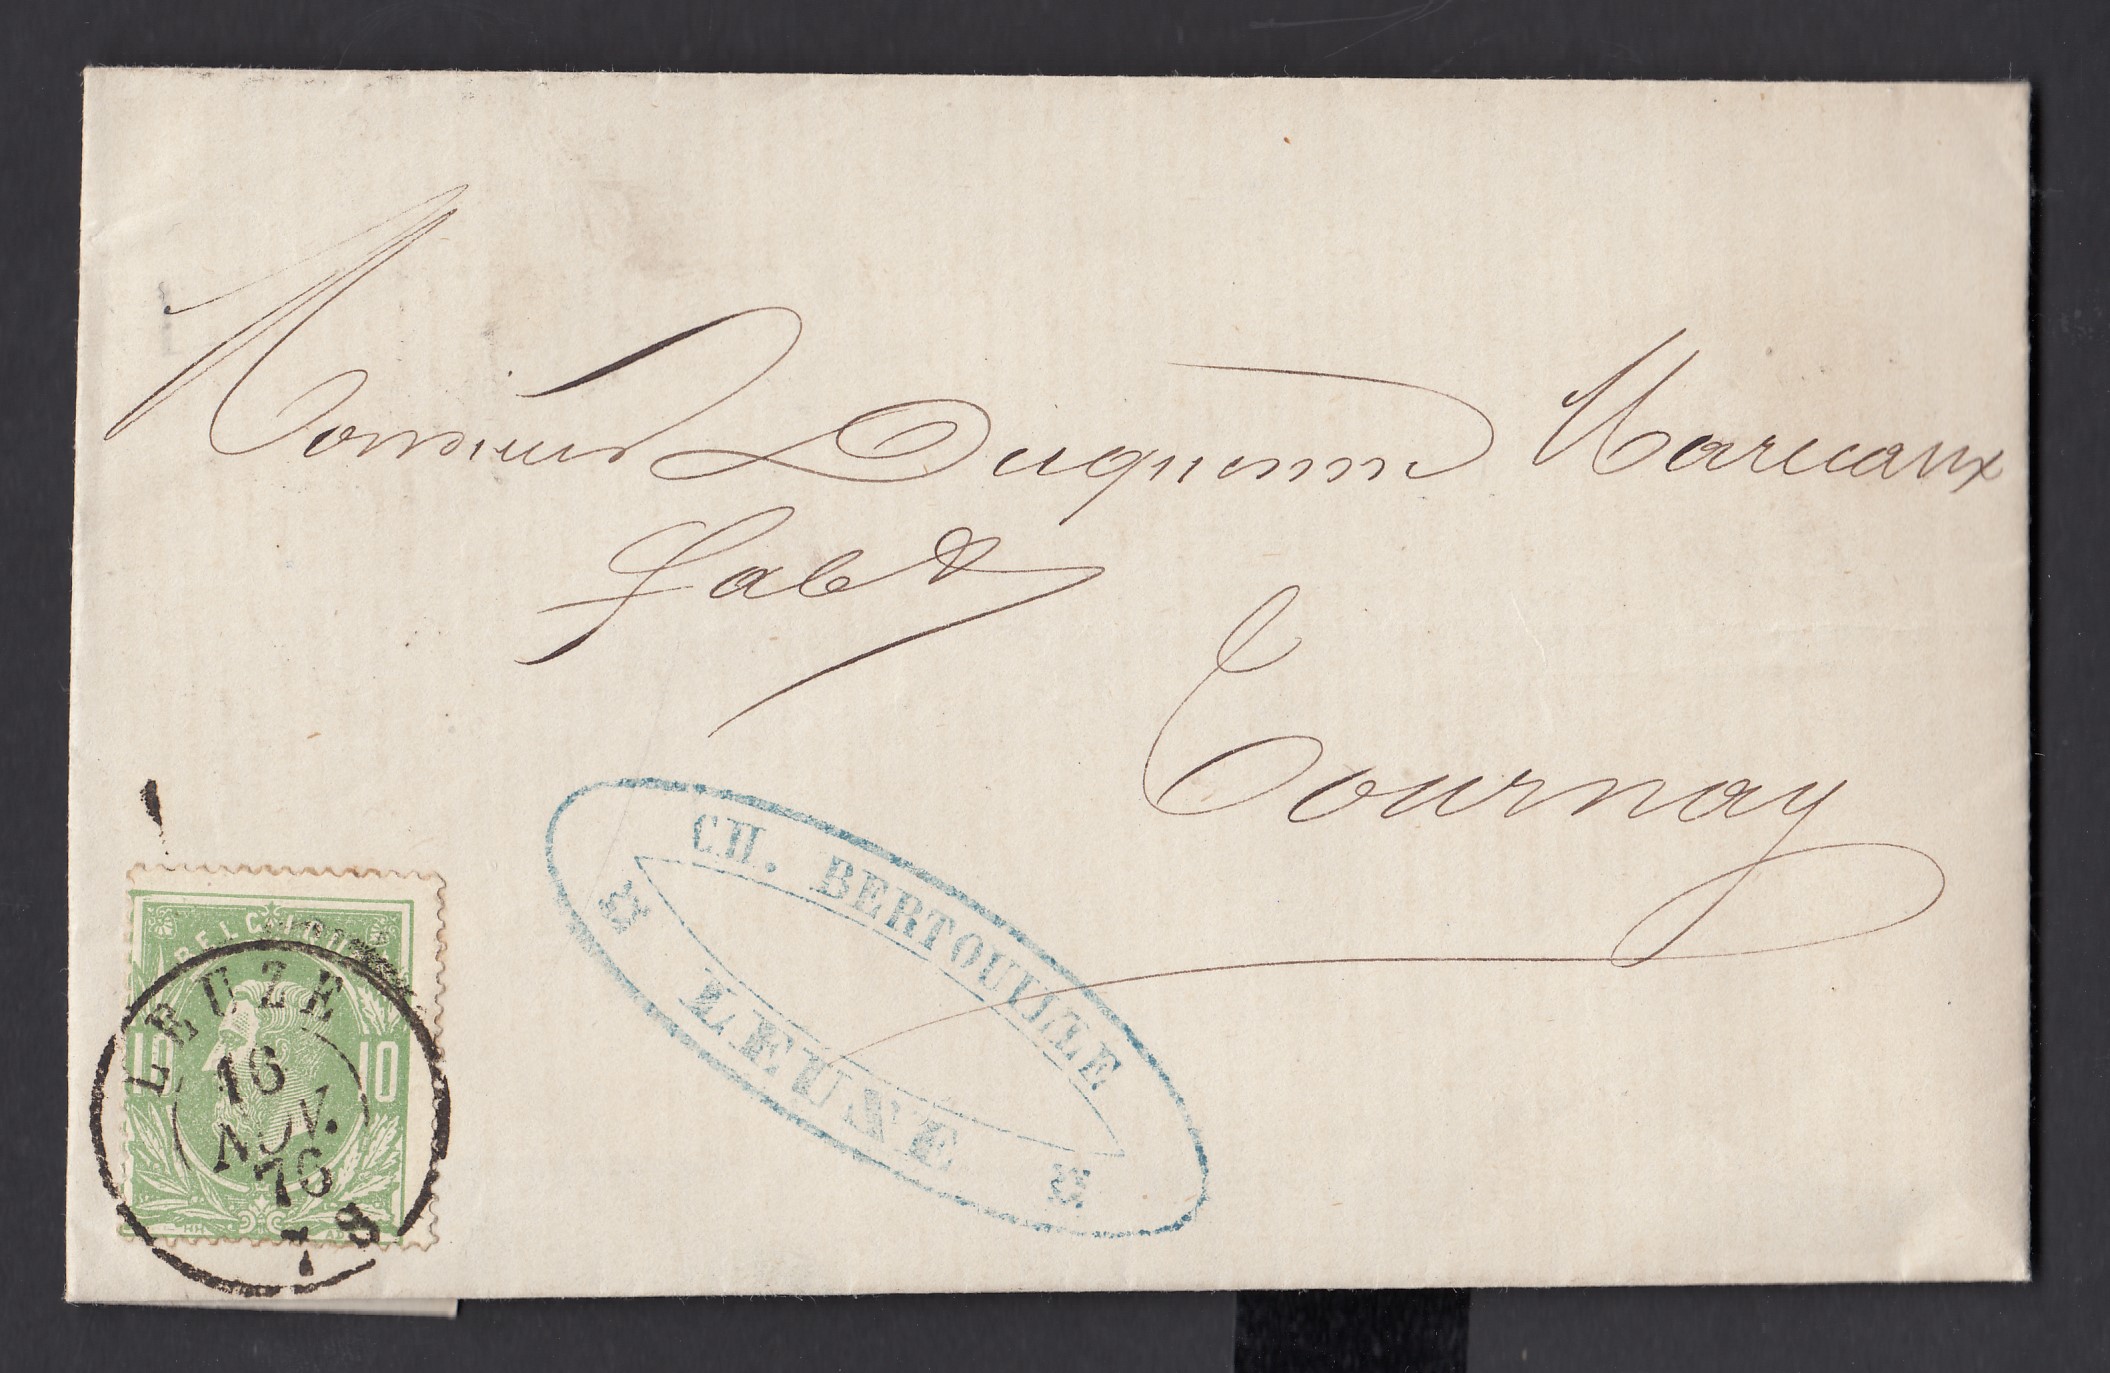 Monsieur Duquenne Marcaux
fabt
Tournay
CH. BERTOUILLE
LEUZE
BELGIQUE
10 10
LEUZE
16
NOV.
76
7 S